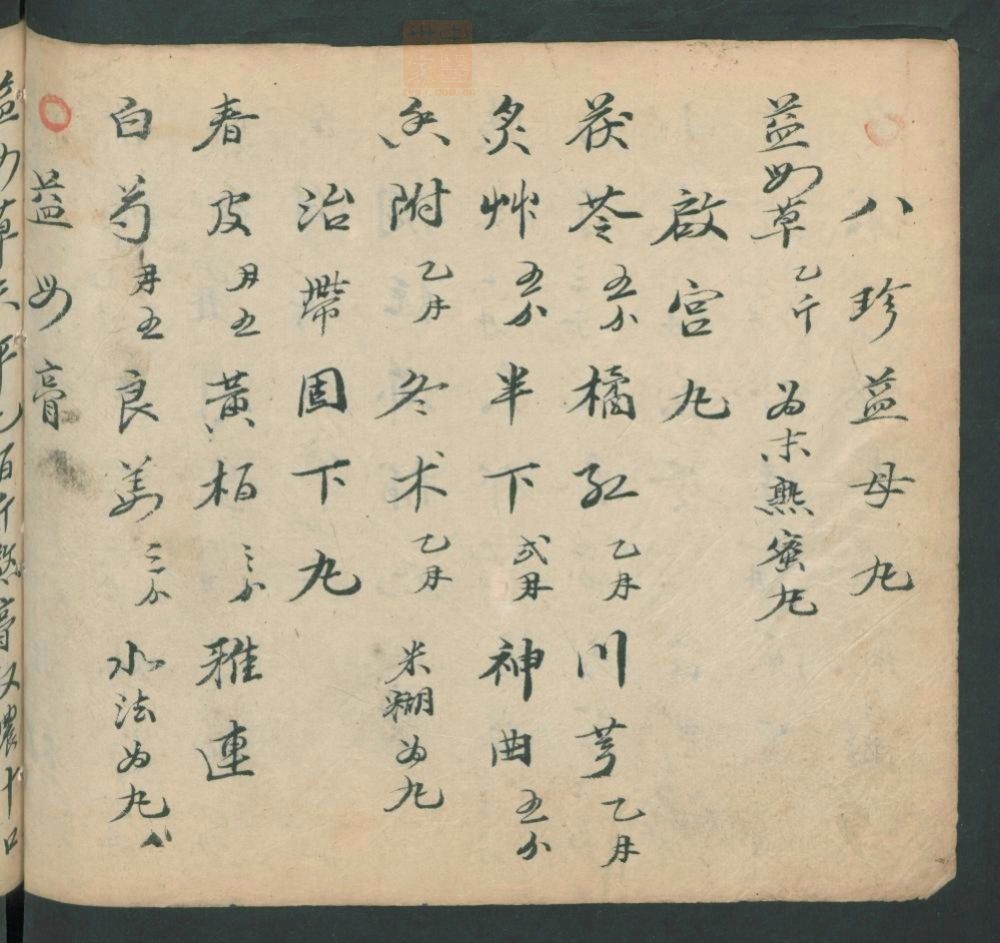 八珍益母丸
益母草 乙斤 为末熟蜜丸
啟宮丸
茯苓 五分 橘红 乙月 川芎 乙月
炙艸 五分 半下 弍月 神曲 五分
香附 乙月 冬术 乙月 米糊为丸
治帶固下丸
春皮 月五 黃栢 三分 雅連
白芍 月五 良姜 三分 水法为丸
益母膏
益母草